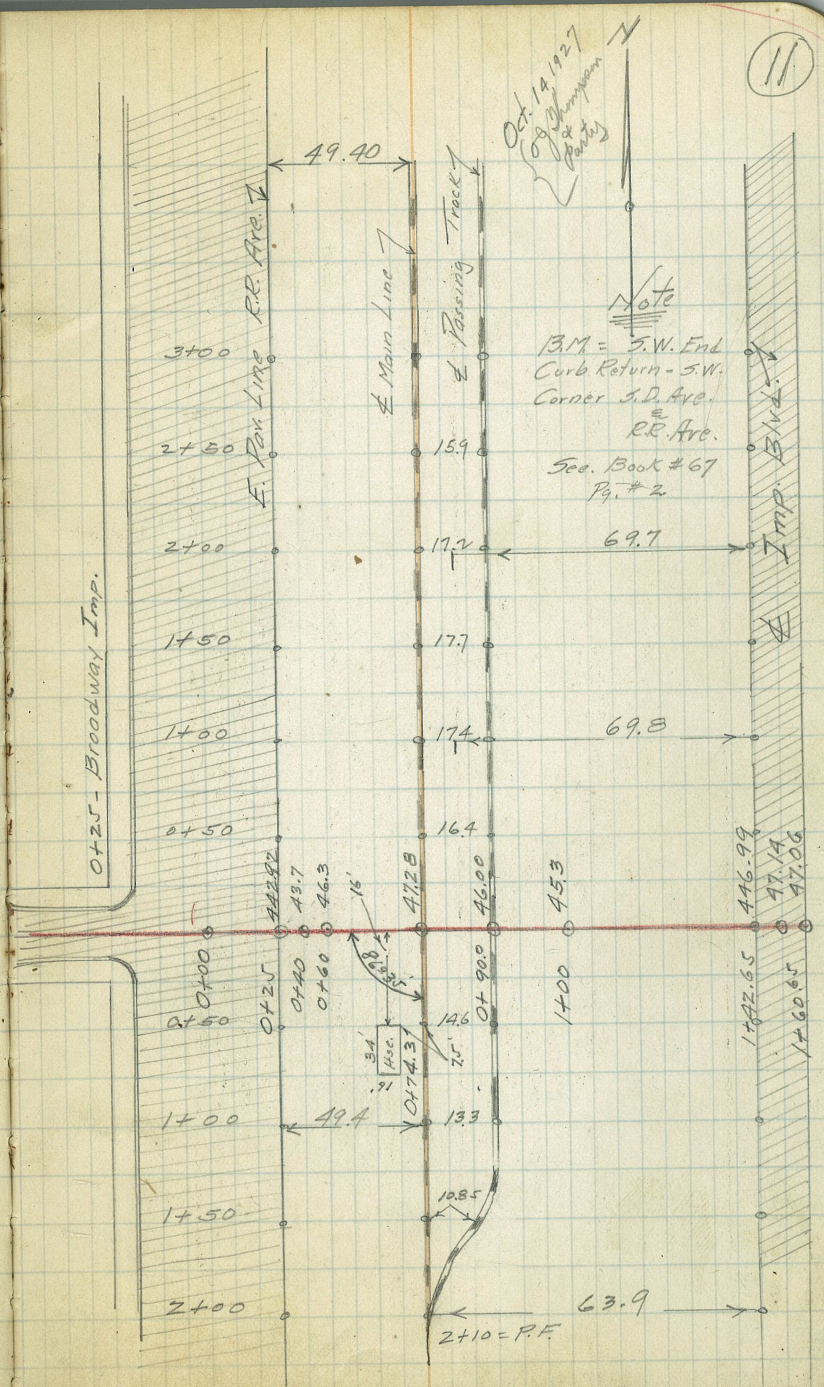 11
Oct. 14 1927
Thompson
&
Party
N
49.40
E. Pav. Line R.R. Ave.
℄ Main Line
℄ Passing Track
Note
B.M. = S.W. End
Curb Return - S.W.
Corner S.D. Ave.
&
R.R. Ave.
See. Book #67
Pg. #2
℄ Imp. Blvd.
0+25 - Broadway Imp.
3+00
2+50
15.9
2+00
17.2
69.7
1+50
17.7
1+00
17.4
69.8
0+50
16.4
442.97
43.7
46.3
16'
47.28
46.00
45.3
446.99
47.14
47.06
0+00
0+25
0+40
0+60
0+74.31
0+90.0
1+00
1+42.65
1+60.65
0+50
34'
Hse.
16.
14.6
7.5'
1+00
49.4
13.3
1+50
10.85
2+00
63.9
2+10 = P.F.